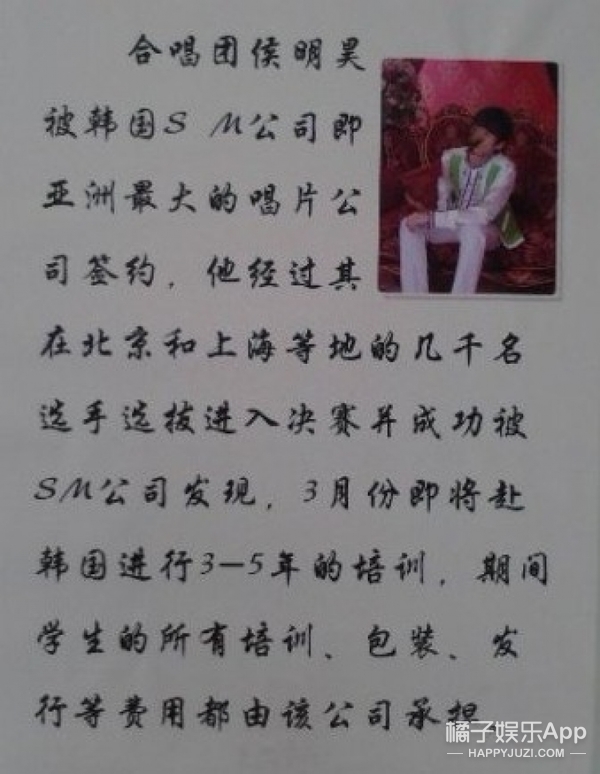 合唱团侯明昊
被韩国SM公司即
亚洲最大的唱片公
司签约，他经过其
在北京和上海等地的几千名
选手选拔进入决赛并成功被
SM公司发现，3月份即将赴
韩国进行3—5年的培训，期间
学生的所有培训、包装、发
行等费用都由该公司承担。
橘子娱乐App
HAPPYJUZI.COM